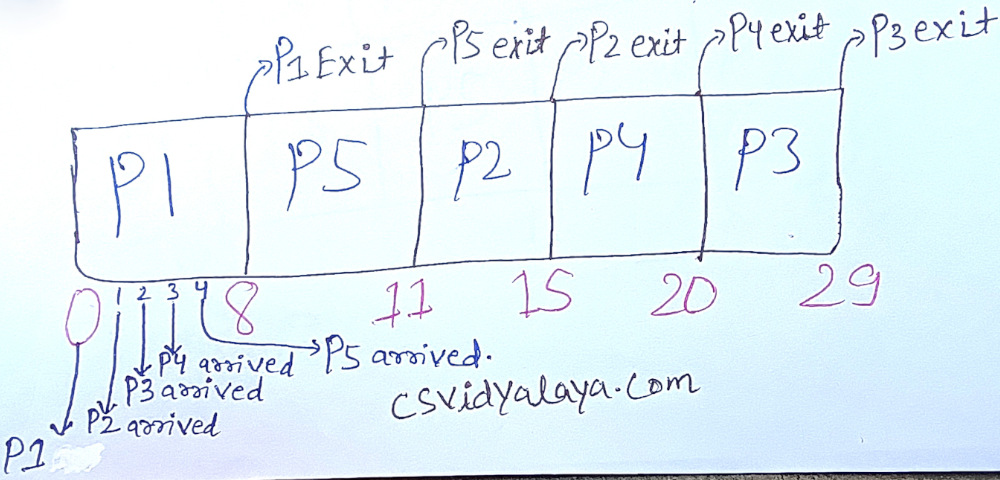 P1 Exit P5 exit P2 exit P4 exit P3 exit
P1 P5 P2 P4 P3
0 1 2 3 4 8 11 15 20 29
P4 arrived P5 arrived.
P3 arrived
P2 arrived
csvidyalaya.com
P1